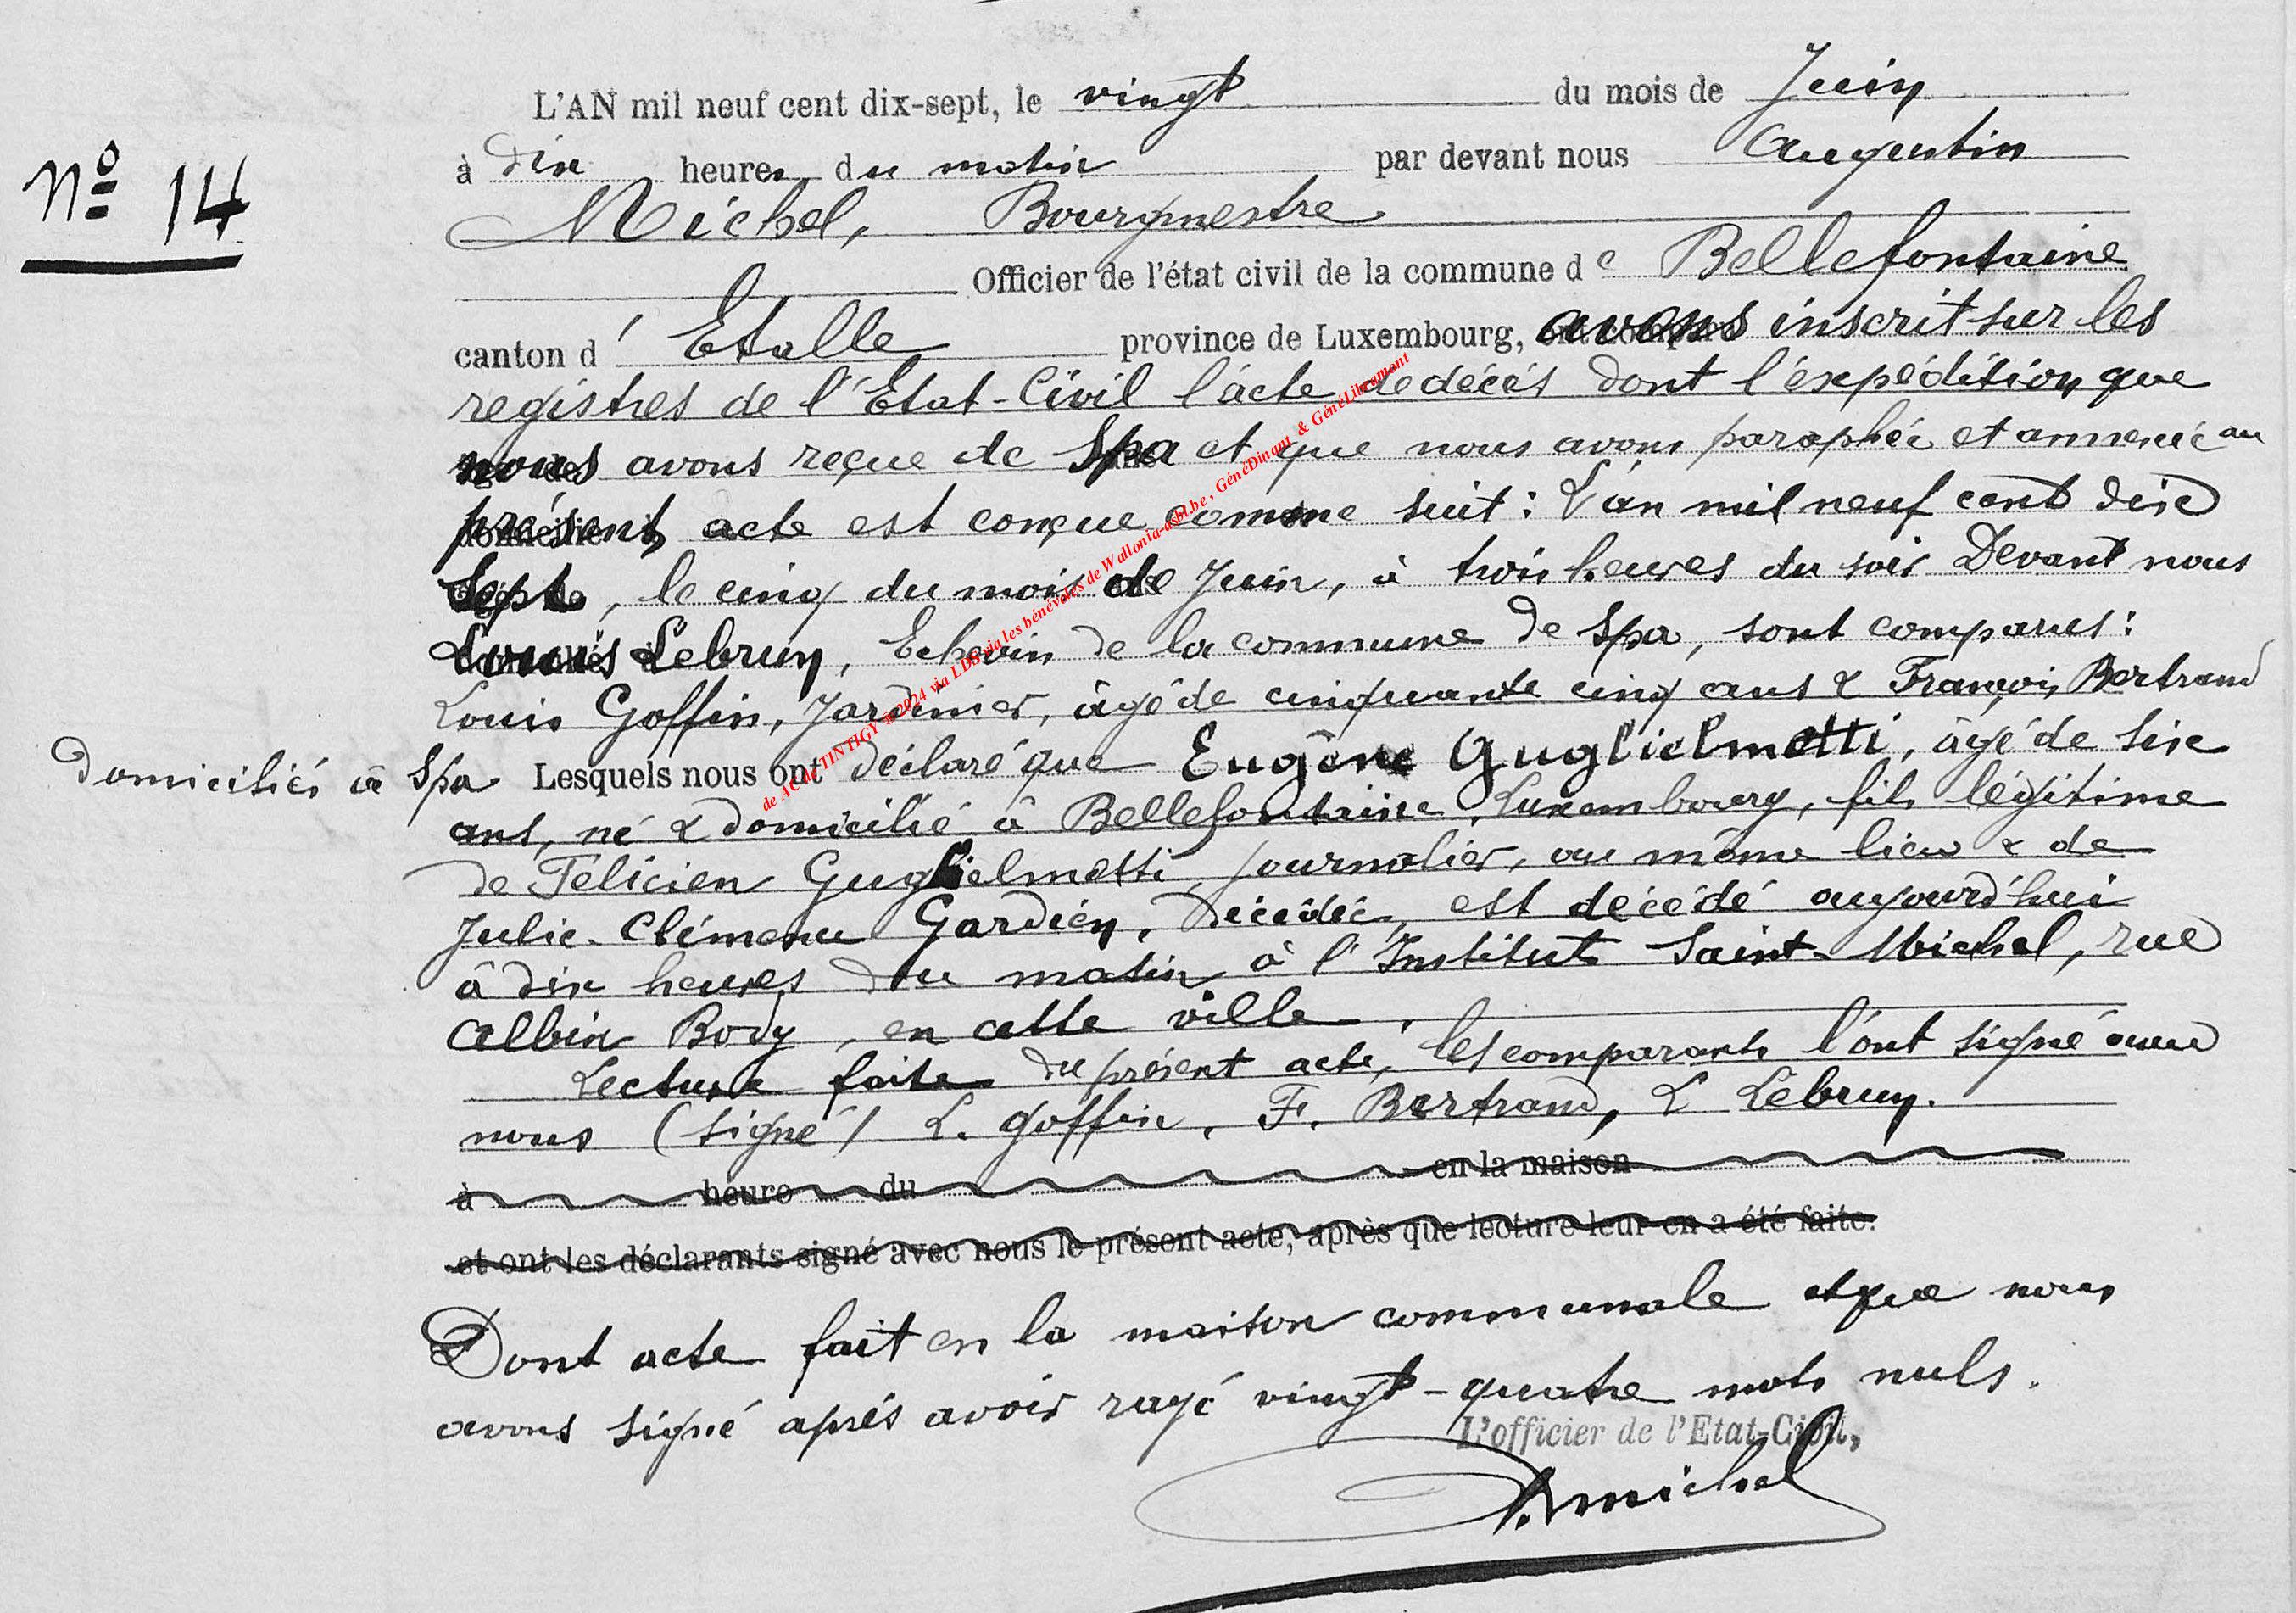 L'AN mil neuf cent dix-sept, le vingt du mois de Juin
No 14
à dix heures du matin par devant nous Augustin
Michel, Bourgmestre
Officier de l'état civil de la commune de Bellefontaine
canton d'Etalle province de Luxembourg, avons inscrit sur les
registres de l'Etat-Civil l'acte de décès dont l'expédition que
nous avons reçue de Spa et que nous avons paraphée et annexée au
présent acte est conçue comme suit : L'an mil neuf cent dix
Sept, le cinq du mois de Juin, à trois heures du soir Devant nous
Louis Lebrun, Echevin de la commune de Spa, sont comparus :
Louis Goffin, Jardinier, âgé de cinquante cinq ans & François Bertrand
domiciliés à Spa Lesquels nous ont déclaré que Eugène Guglielmetti, âgé de six
ans, né & domicilié à Bellefontaine, Luxembourg, fils légitime
de Félicien Guglielmetti, journalier, au même lieu & de
Julie-Clémence Gardien, décédée, est décédé aujourd'hui
à dix heures du matin à l'Institut Saint-Michel, rue
Albin Body, en cette ville.
Lecture faite du présent acte, les comparants l'ont signé avec
nous (signé) L. Goffin, F. Bertrand, L Lebrun.
à heure du en la maison
et ont les déclarants signé avec nous le présent acte, après que lecture leur en a été faite.
Dont acte fait en la maison communale et que nous
avons signé après avoir rayé vingt-quatre mots nuls.
L'officier de l'Etat-Civil,
A. Michel
de ACACTINTIGY @ 2024 via LDS via les bénévoles de Wallonia-asbl.be, GénéDinant & GénéLibramont